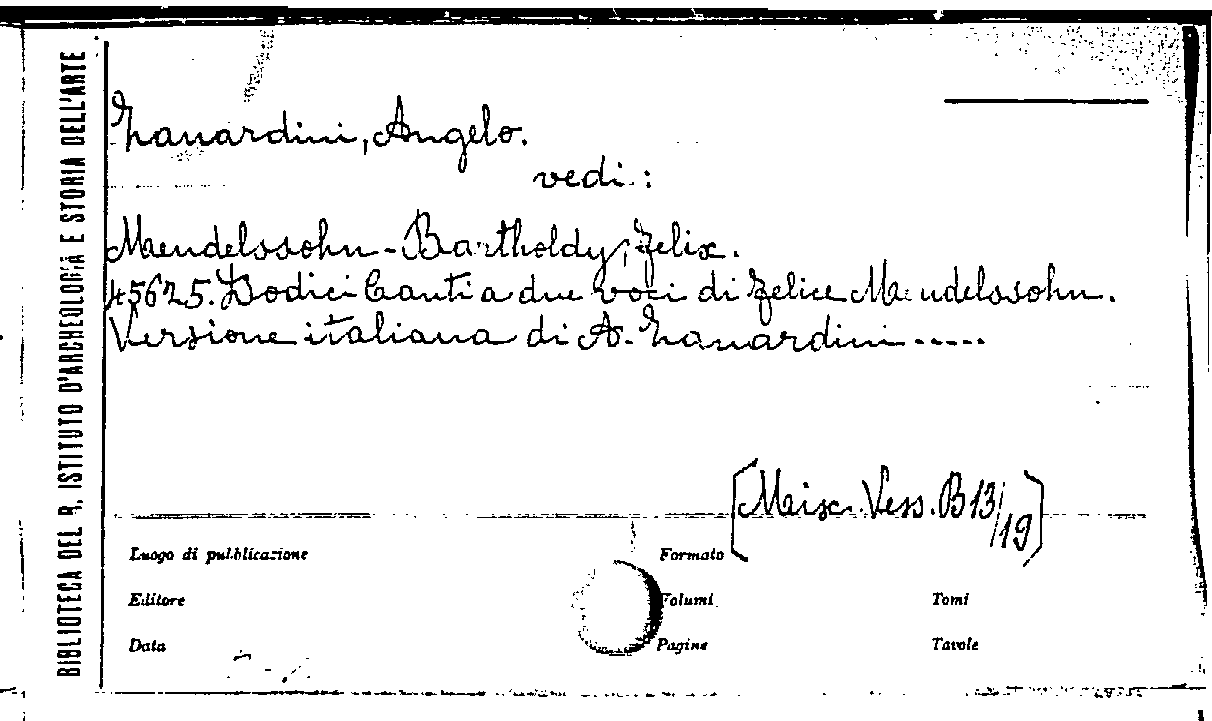 BIBLIOTECA DEL R. ISTITUTO D'ARCHEOLOGIA E STORIA DELL'ARTE
Zanardini, Angelo.
vedi:
Mendelssohn-Bartholdy, Felix.
45625. Dodici Canti a due voci di Felice Mendelssohn.
Versione italiana di A. Zanardini.....
[Misc. Vess. B 13/19]
Luogo di pubblicazione
Formato
Editore
Volumi
Tomi
Data
Pagine
Tavole